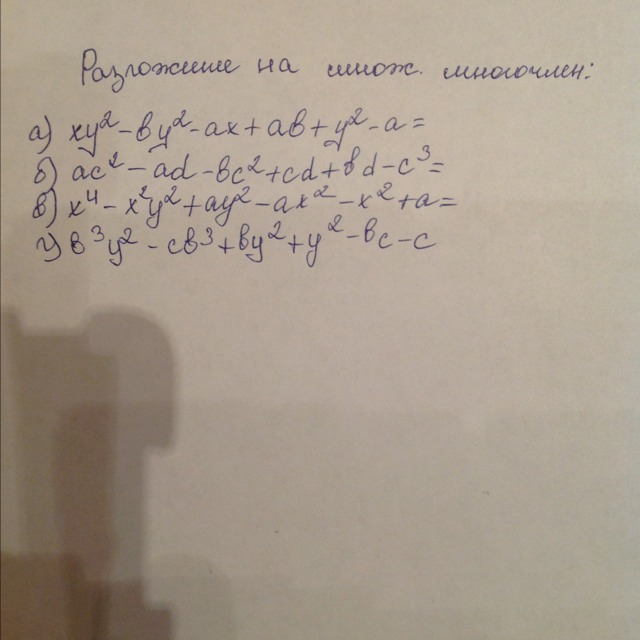 Разложение на множ. многочлен:
а) xy² - by² - ax + ab + y² - a =
б) ac² - ad - bc² + cd + bd - c³ =
в) x⁴ - x²y² + ay² - ax² - x² + a =
г) b³y² - cb³ + by² + y² - bc - c